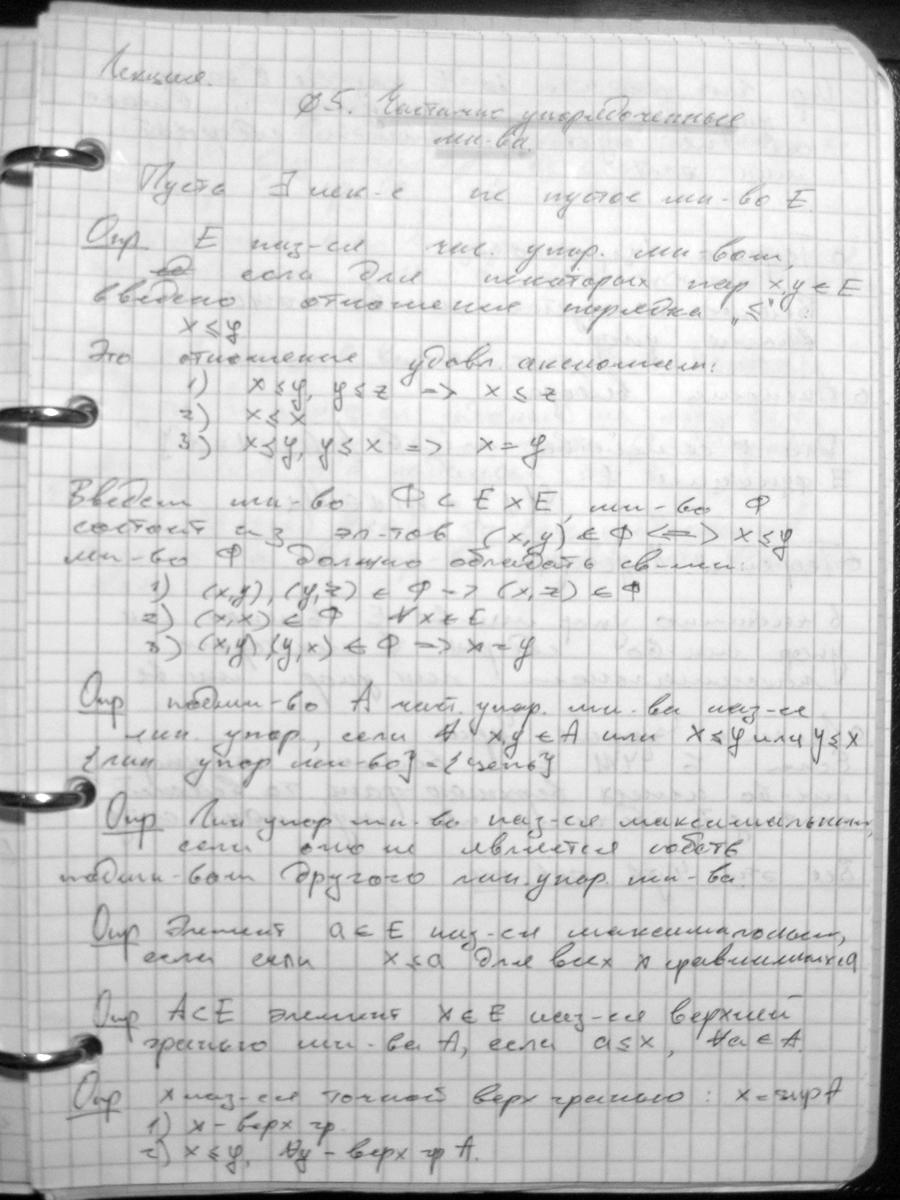 Лекция.
§5. Частично упорядоченные
мн-ва.
Пусть ∃ нек-е не пустое мн-во E
Опр E наз-ся час. упор. мн-вом,
если для некоторых пар x,y ∈ E
введено отношение порядка „≤“:
x ≤ y
Это отношение удовл. аксиомам:
1) x ≤ y, y ≤ z => x ≤ z
2) x ≤ x
3) x ≤ y, y ≤ x => x = y
Введем мн-во Ф ⊂ E × E, мн-во Ф
состоит из эл-тов (x,y) ∈ Ф <=> x ≤ y
мн-во Ф должно обладать св-ми:
1) (x,y), (y,z) ∈ Ф => (x,z) ∈ Ф
2) (x,x) ∈ Ф ∀x ∈ E
3) (x,y),(y,x) ∈ Ф => x = y
Опр подмн-во A част. упор. мн-ва наз-ся
лин. упор., если ∀ x,y ∈ A или x ≤ y или y ≤ x
{лин упор мн-во} = {цепь}
Опр Лин упор мн-во наз-ся максимальным,
если оно не является собств
подмн-вом другого лин. упор. мн-ва.
Опр Элемент a ∈ E наз-ся максимальным,
если если x ≤ a для всех x сравнимых с a
Опр A ⊂ E элемент x ∈ E наз-ся верхней
гранью мн-ва A, если a ≤ x, ∀a ∈ A.
Опр x наз-ся точной верх гранью: x = sup A
1) x - верх гр.
2) x ≤ y, ∀y - верх гр A.